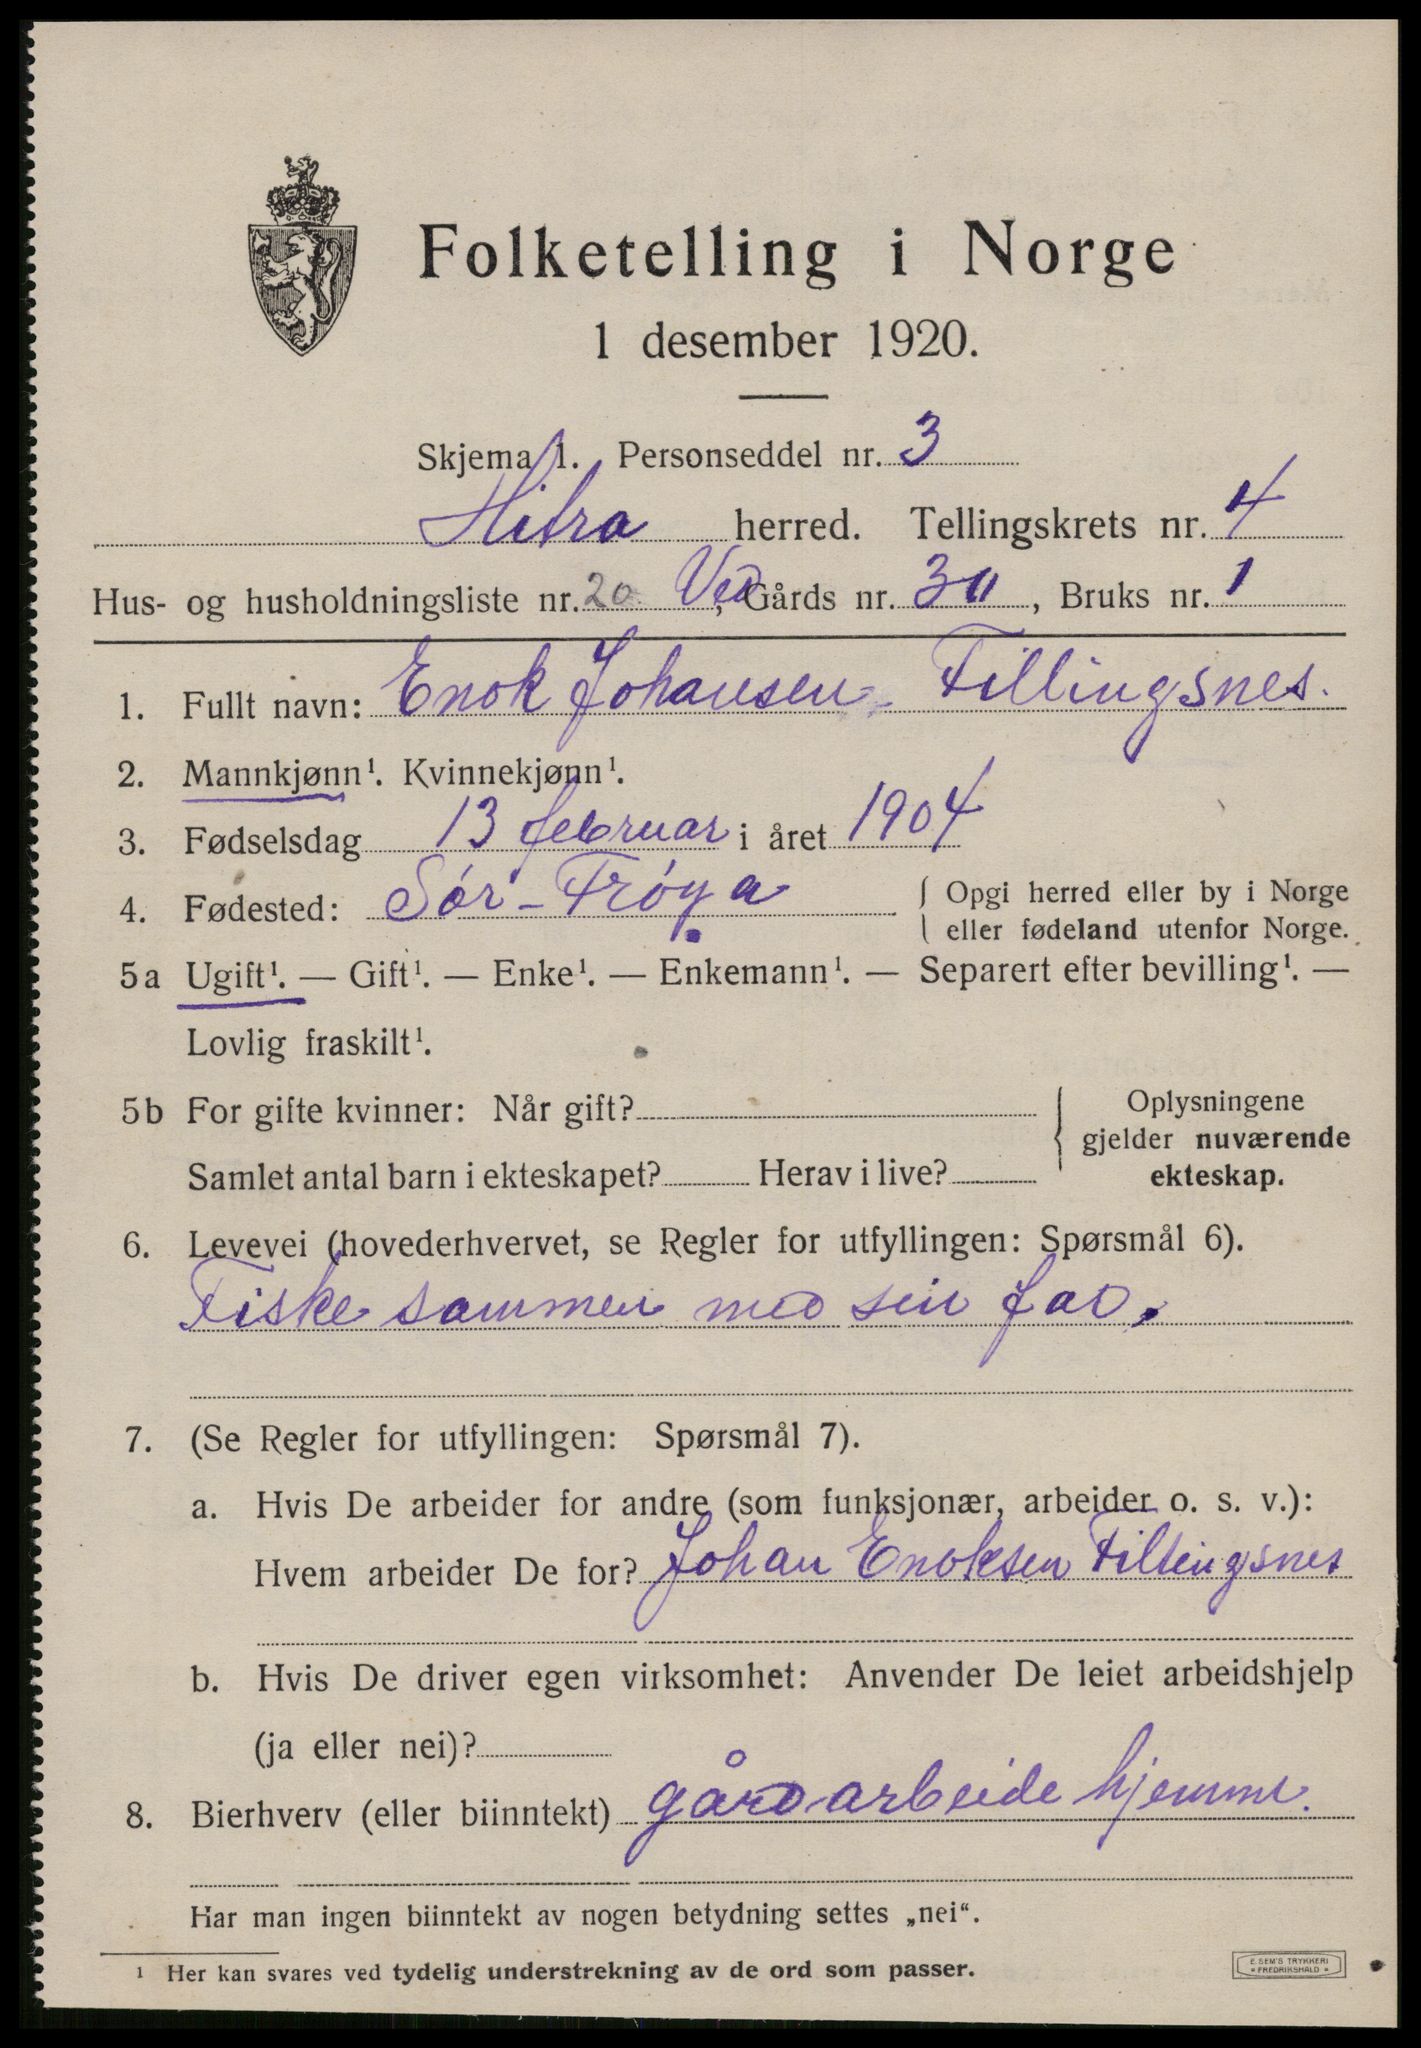 Folketelling i Norge
1 desember 1920.
Skjema 1. Personseddel nr. 3
Hitra herred. Tellingskrets nr. 4
Hus- og husholdningsliste nr. 20, Gårds nr. 30, Bruks nr. 1
1. Fullt navn: Enok Johansen Fillingsnes.
2. Mannkjønn¹. Kvinnekjønn¹.
3. Fødselsdag 13 februar i året 1904
4. Fødested: Sór-Fróya { Opgi herred eller by i Norge
eller fødeland utenfor Norge.
5a Ugift¹. — Gift¹. — Enke¹. — Enkemann¹. — Separert efter bevilling¹. —
Lovlig fraskilt¹.
5b For gifte kvinner: Når gift? { Oplysningene
gjelder nuværende
Samlet antal barn i ekteskapet? Herav i live? ekteskap.
6. Levevei (hovederhvervet, se Regler for utfyllingen: Spørsmål 6).
Fiske sammen med sin far.
7. (Se Regler for utfyllingen: Spørsmål 7).
a. Hvis De arbeider for andre (som funksjonær, arbeider o. s. v.):
Hvem arbeider De for? Johan Enoksen Fillingsnes
b. Hvis De driver egen virksomhet: Anvender De leiet arbeidshjelp
(ja eller nei)?
8. Bierhverv (eller biinntekt) gårdarbeide hjemme.
Har man ingen biinntekt av nogen betydning settes „nei“.
¹ Her kan svares ved tydelig understrekning av de ord som passer.
E. SEM'S TRYKKERI
* FREDRIKSHALD *